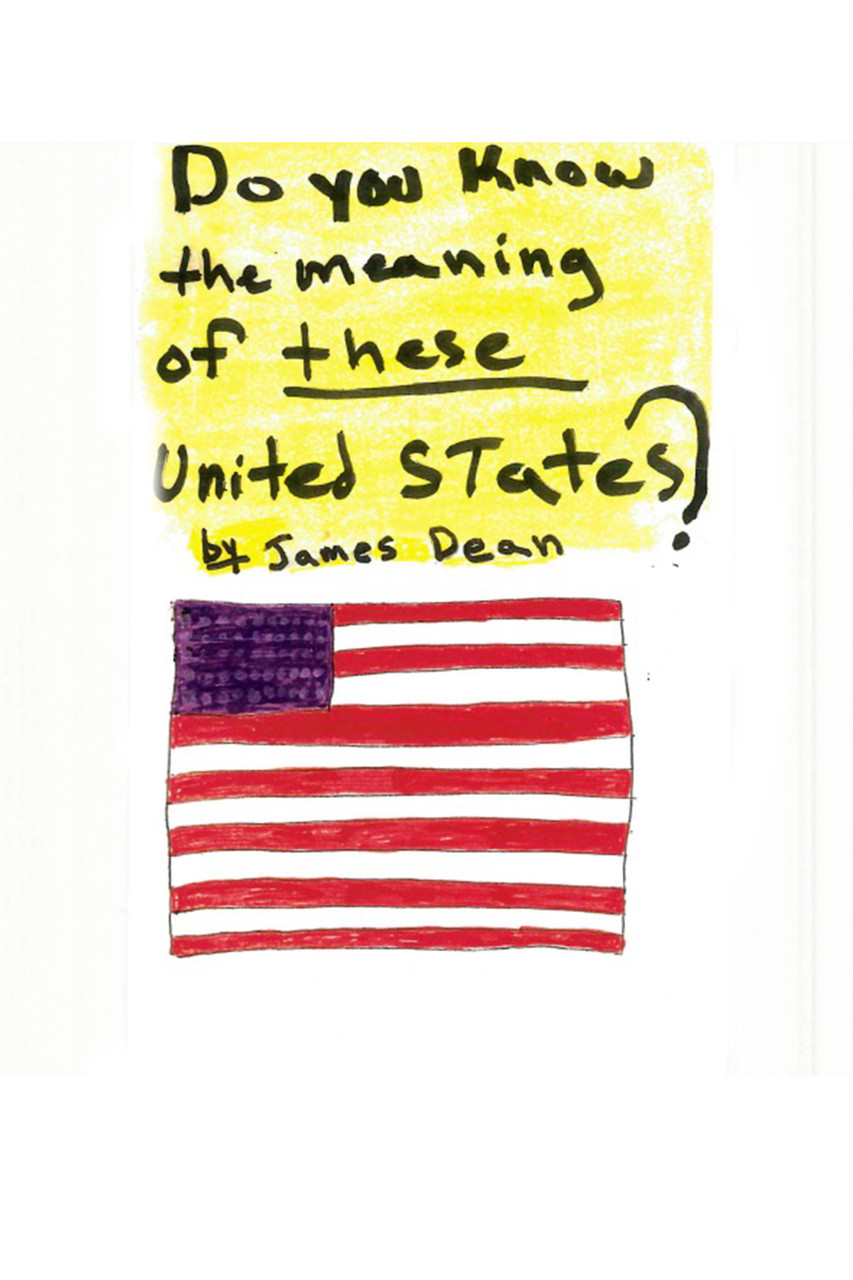 Do you Know
the meaning
of these
United STates?
by James Dean